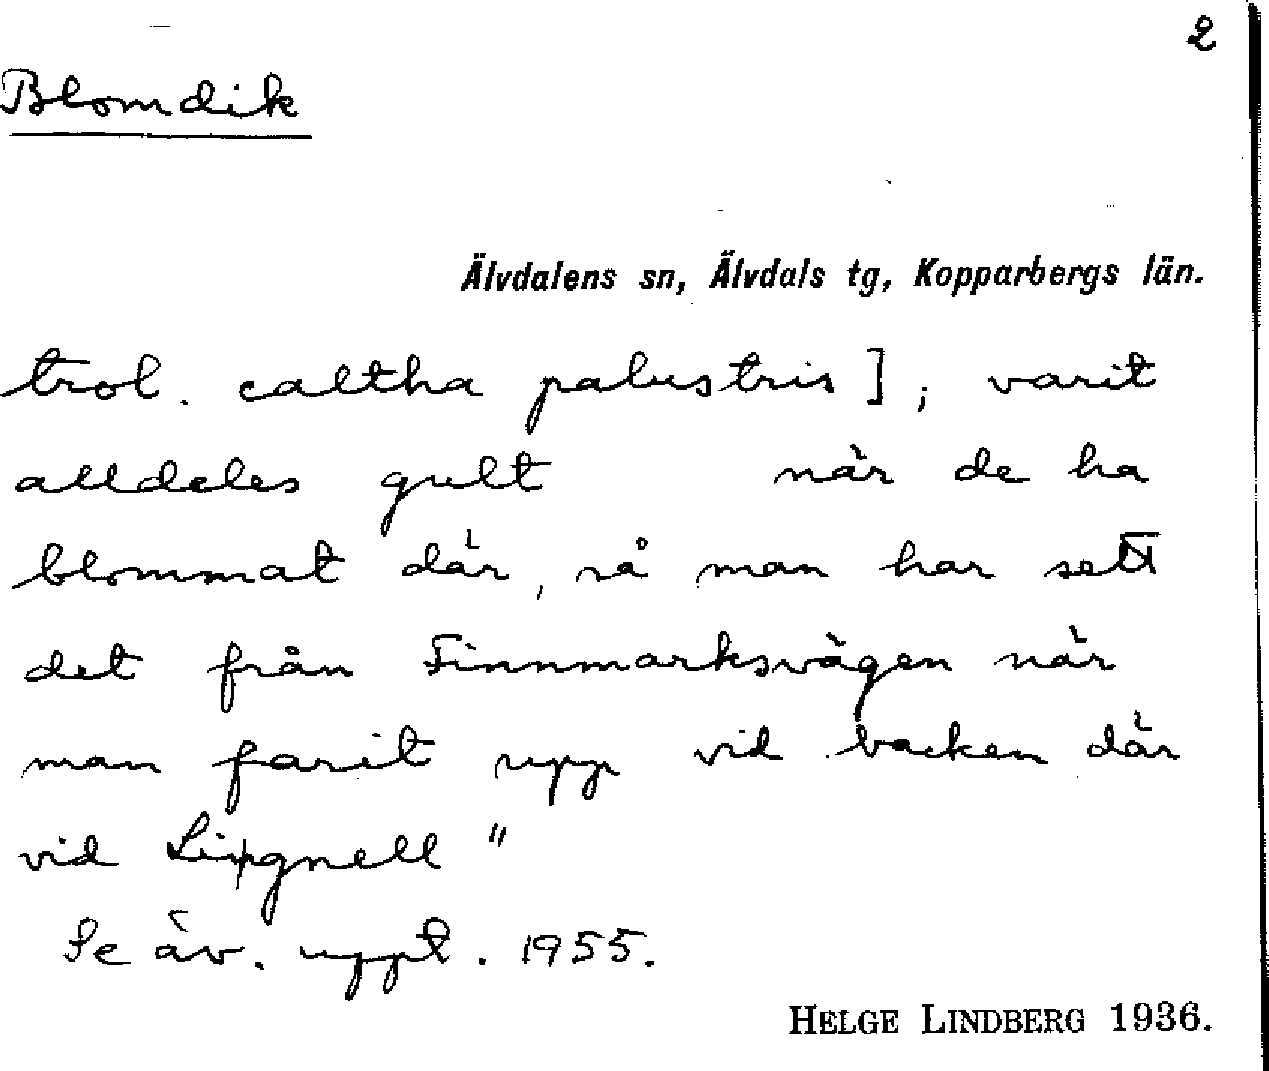 2
Blomdik
Älvdalens sn, Älvdals tg, Kopparbergs län.
trol. caltha palustris]; varit
alldeles gult när de ha
blommat där, så man har sett
det från Finnmarksvägen när
man farit upp vid backen där
vid "
Se äv. uppt. 1955.
HELGE LINDBERG 1936.